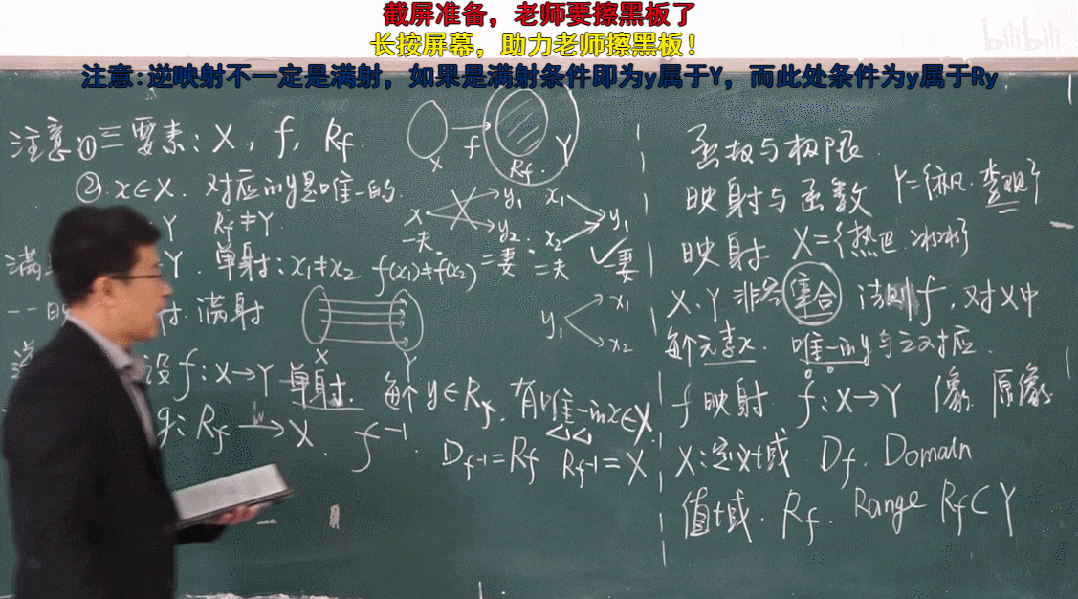 截屏准备，老师要擦黑板了
长按屏幕，助力老师擦黑板！
注意:逆映射不一定是满射，如果是满射条件即为y属于Y，而此处条件为y属于Ry
bilibili
注意①三要素：X，f，Rf.
② x∈X. 对应的y是唯一的.
Y Rf≠Y.
满 Y. 单射：x₁≠x₂ f(x₁)≠f(x₂)
一一 射. 满射
设 f：X→Y 单射. 每个 y∈Rf, 有唯一的x∈X.
g：Rf→X. f⁻¹. Df⁻¹=Rf Rf⁻¹=X
X f Rf. Y
x y₁ y₂
一夫 二妻
x₁ x₂ y₁
二夫 一妻
y₁ x₁ x₂
X Y
函数与极限.
映射与函数 Y={ }
映射 X={热巴. 冰冰}
X、Y 非空集合 法则f，对X中
每个元素x. 唯一的y与之对应.
f 映射. f：X→Y 像 原像
X：定义域. Df. Domain
值域. Rf. Range Rf⊂Y